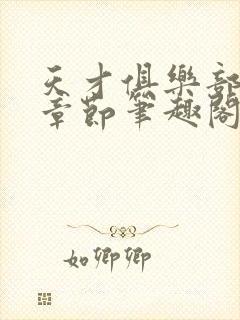 天才俱樂部
章節筆趣閣
如卿卿